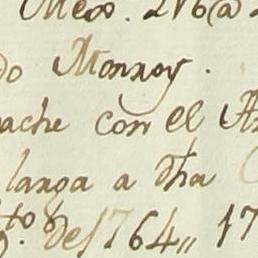 Mexo. 
do Monroy.
pache con el A
larga a dha
to. de 1764,, 17